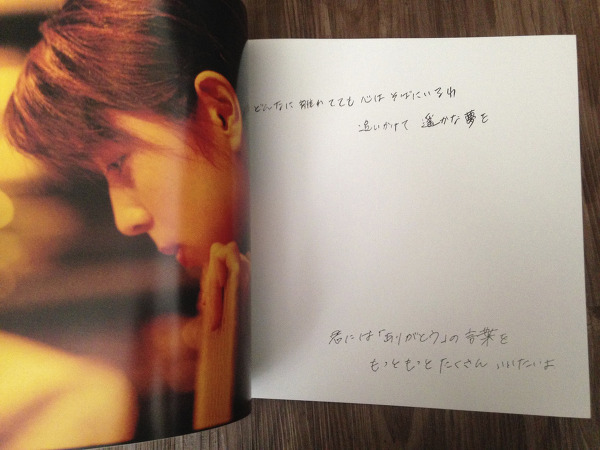 どんなに離れてても 心は そばにいるわ
追いかけて 遥かな夢を
君には「ありがとう」の言葉を
もっともっと たくさん いいたいよ